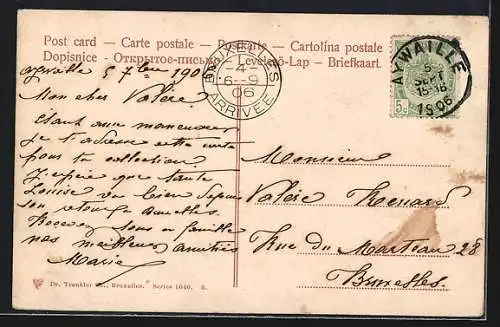 Post card – Carte postale – Postkarte – Cartolina postale
Dopisnice – Открытое письмо – Levelező-Lap – Briefkaart.
Aywaille 5 7bre 190
Mon cher Valère.
Etant aux manoeuvres
je t'adresse cette carte
pour ta collection.
J'espère que tante
Louise va bien depuis
son retour à Bruxelles.
Recevez tous en famille
nos meilleures amitiés
Marie
BRUXELLES
4
6-9
06
ARRIVÉE
AYWAILLE
5
SEPT
15-16
1906
5c
Monsieur
Valère Renard
Rue du Marteau 28
Bruxelles.
Dr. Trenkler Co., Bruxelles. Series 1040. 6.